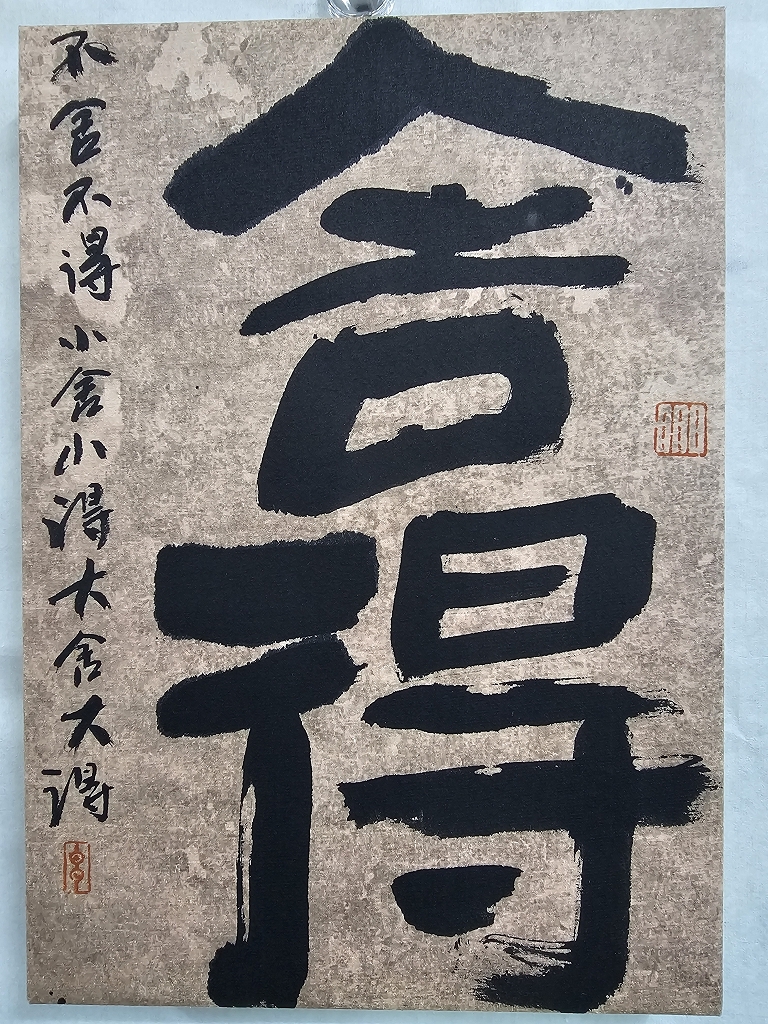 舍得
不舍不得小舍小得大舍大得